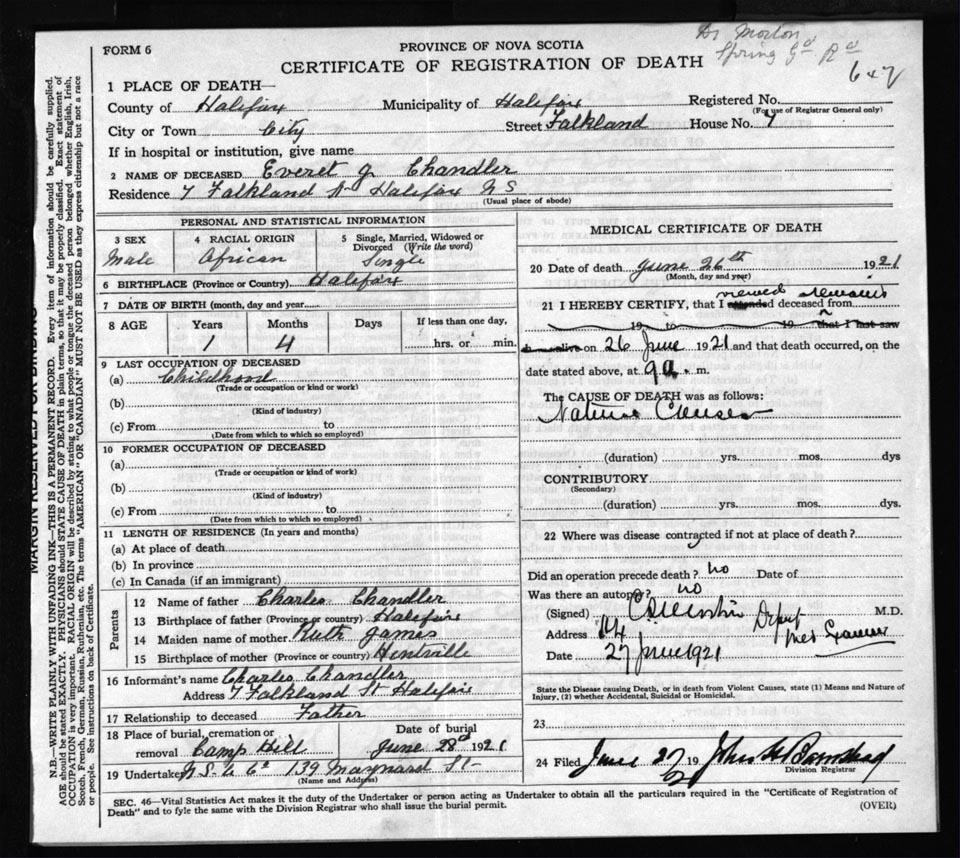 Dr Morton
Spring Gd Rd
647
FORM 6
PROVINCE OF NOVA SCOTIA
CERTIFICATE OF REGISTRATION OF DEATH
1 PLACE OF DEATH—
County of Halifax Municipality of Halifax Registered No.
(For use of Registrar General only)
City or Town City Street Falkland House No. 7
If in hospital or institution, give name
2 NAME OF DECEASED Everet J Chandler
Residence 7 Falkland St Halifax N S
(Usual place of abode)
PERSONAL AND STATISTICAL INFORMATION
3 SEX 4 RACIAL ORIGIN 5 Single, Married, Widowed or
Divorced (Write the word)
Male African Single
6 BIRTHPLACE (Province or Country) Halifax
7 DATE OF BIRTH (month, day and year)
8 AGE Years Months Days If less than one day,
1 4 hrs. or min.
9 LAST OCCUPATION OF DECEASED
(a) Childhood
(Trade or occupation or kind or work)
(b)
(Kind of industry)
(c) From to
(Date from which to which so employed)
10 FORMER OCCUPATION OF DECEASED
(a)
(Trade or occupation or kind of work)
(b)
(Kind of industry)
(c) From to
(Date from which to which so employed)
11 LENGTH OF RESIDENCE (In years and months)
(a) At place of death
(b) In province
(c) In Canada (if an immigrant)
Parents
12 Name of father Charles Chandler
13 Birthplace of father (Province or country) Halifax
14 Maiden name of mother Ruth James
15 Birthplace of mother (Province or country)
16 Informant's name Charles Chandler
Address 7 Falkland St Halifax
17 Relationship to deceased Father
18 Place of burial, cremation or Date of burial
removal Camp Hill June 28th 1921
19 Undertaker 139 Maynard St
(Name and Address)
MEDICAL CERTIFICATE OF DEATH
20 Date of death June 26th 1921
(Month, day and year)
viewed remains
21 I HEREBY CERTIFY, that I attended deceased from
19 to 19 that I last saw
h alive on 26 June 1921 and that death occurred, on the
date stated above, at 9 a. m.
The CAUSE OF DEATH was as follows:
Natural Causes
(duration) yrs. mos. dys
CONTRIBUTORY
(Secondary)
(duration) yrs. mos. dys.
22 Where was disease contracted if not at place of death?
Did an operation precede death? No Date of
Was there an autopsy? No
(Signed) M.D.
Address
Date 27 June 1921
State the Disease causing Death, or in death from Violent Causes, state (1) Means and Nature of
Injury, (2) whether Accidental, Suicidal or Homicidal.
23
24 Filed June 27 19 21
Division Registrar
SEC. 46—Vital Statistics Act makes it the duty of the Undertaker or person acting as Undertaker to obtain all the particulars required in the "Certificate of Registration of
Death" and to fyle the same with the Division Registrar who shall issue the burial permit.
(OVER)
MARGIN RESERVED FOR BINDING
N.B.—WRITE PLAINLY WITH UNFADING INK—THIS IS A PERMANENT RECORD. Every item of information should be carefully supplied.
AGE should be stated EXACTLY. PHYSICIANS should STATE CAUSE OF DEATH in plain terms, so that it may be properly classified. Exact statement of
OCCUPATION is very important. RACIAL ORIGIN will be described by stating to what people or tongue the deceased person belonged whether English, Irish,
Scotch, French, German, Russian, Ruthenian, etc. The terms "AMERICAN" OR "CANADIAN" MUST NOT BE USED as they express citizenship but not a race
or people. See instructions on back of Certificate.